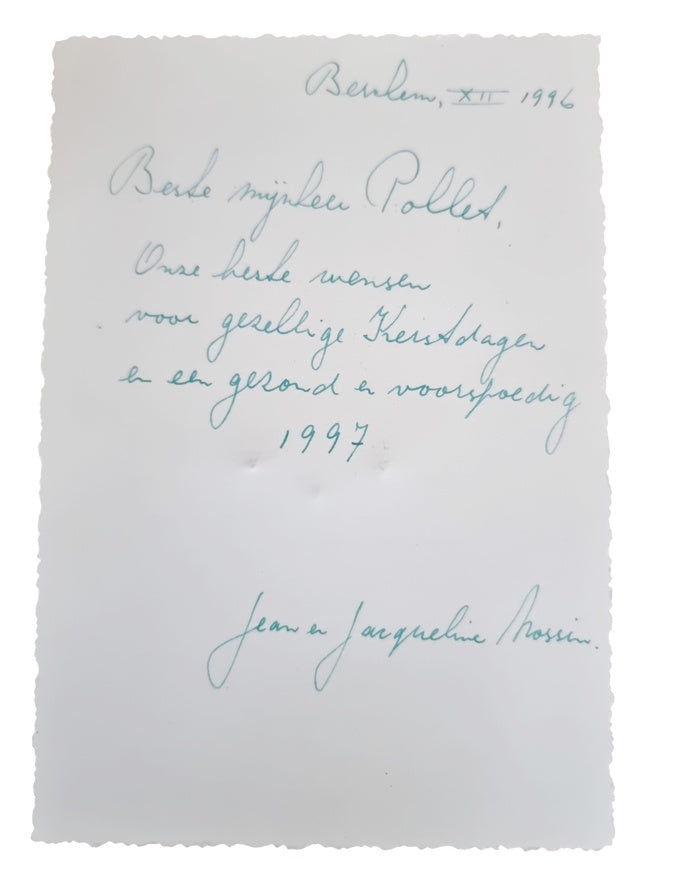 Berchem, XII 1996
Beste mijnheer Pollet,
Onze beste wensen
voor gezellige Kerstdagen
en een gezond en voorspoedig
1997
Jean en Jacqueline